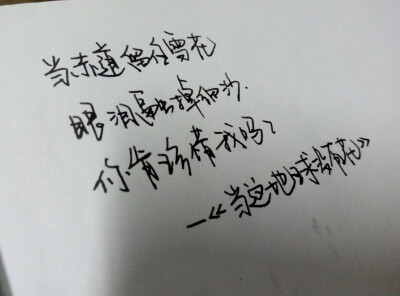 当赤道留住雪花
眼泪融掉细沙.
你肯珍惜我吗?
—《当这地球没有花》